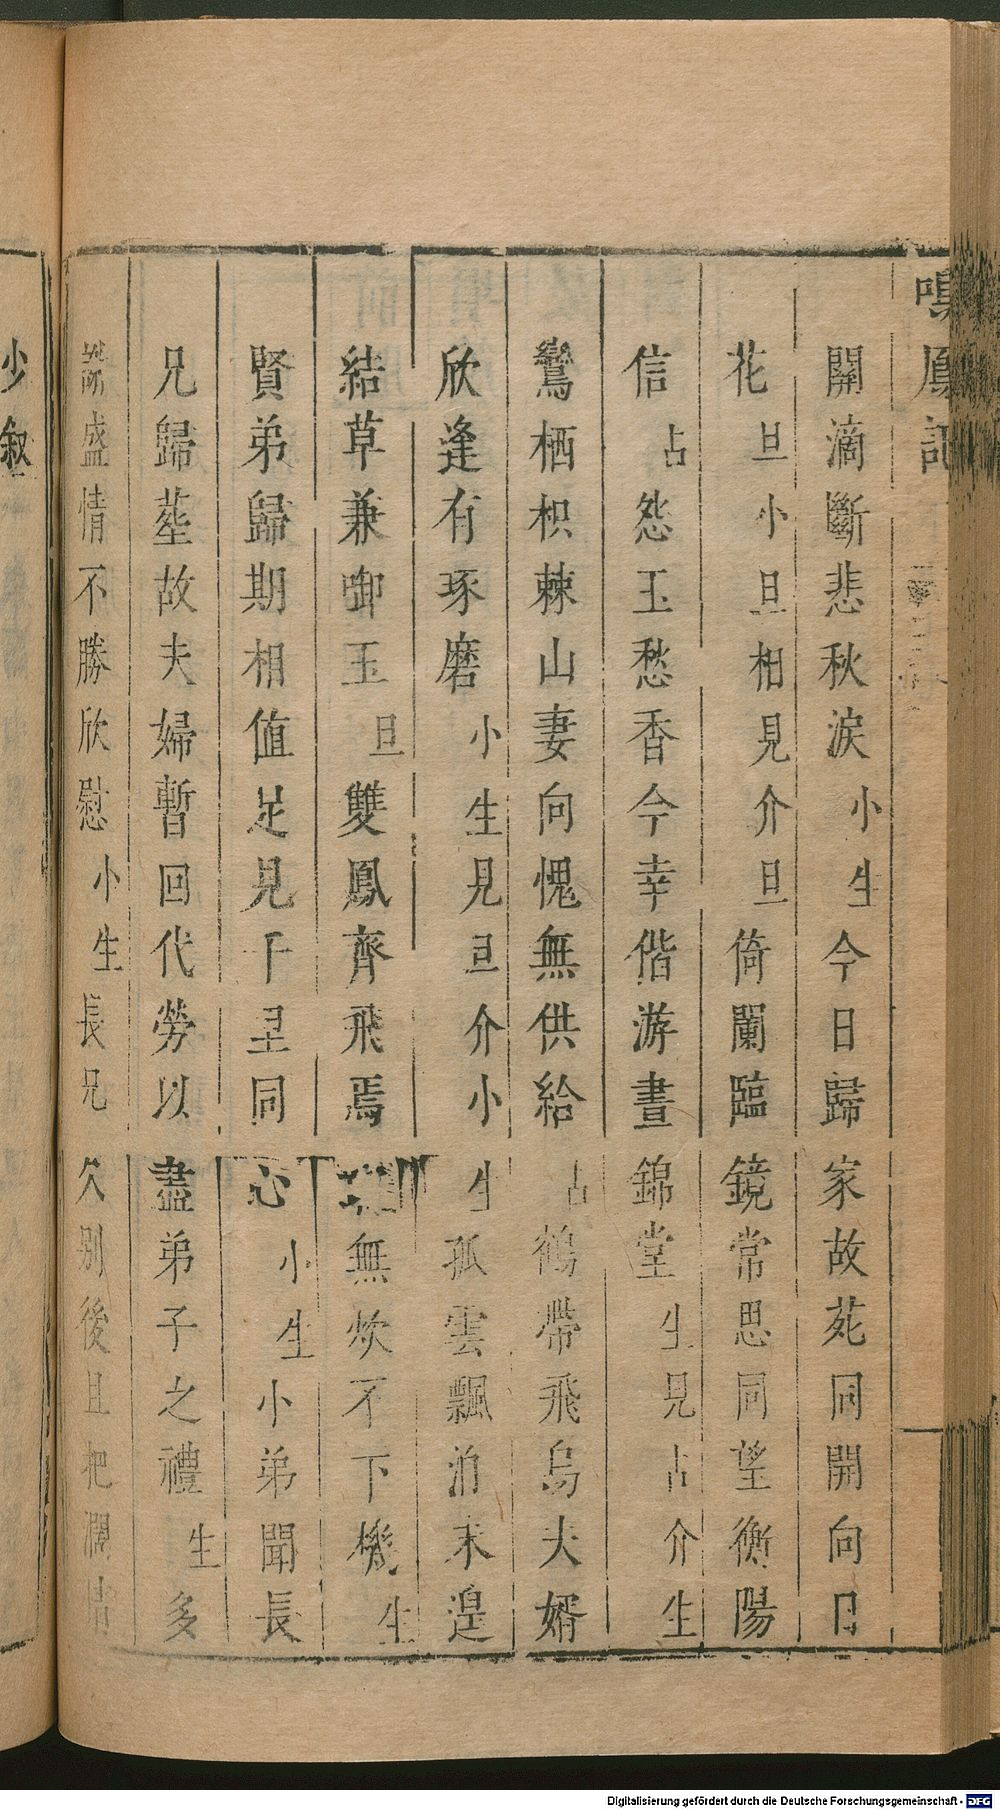 鳴鳳記
關滴斷悲秋淚小生今日歸家故苑同開向日
花旦小旦相見介旦倚闌臨鏡常思同望衡陽
信占怨玉愁香今幸偕游晝錦堂生見占介生
鸞栖枳棘山妻向愧無供給占鶴帶飛烏夫婿
欣逢有琢磨小生見旦介小生孤雲飄泊未遑
結草兼啣玉旦雙鳳齊飛焉無炊不下機生
賢弟歸期相值足見千里同心小生小弟聞長
兄歸塟故夫婦暫回代勞以盡弟子之禮生多
謝盛情不勝欣慰小生長兄久別後且把濶情
少敘
Digitalisierung gefördert durch die Deutsche Forschungsgemeinschaft - DFG